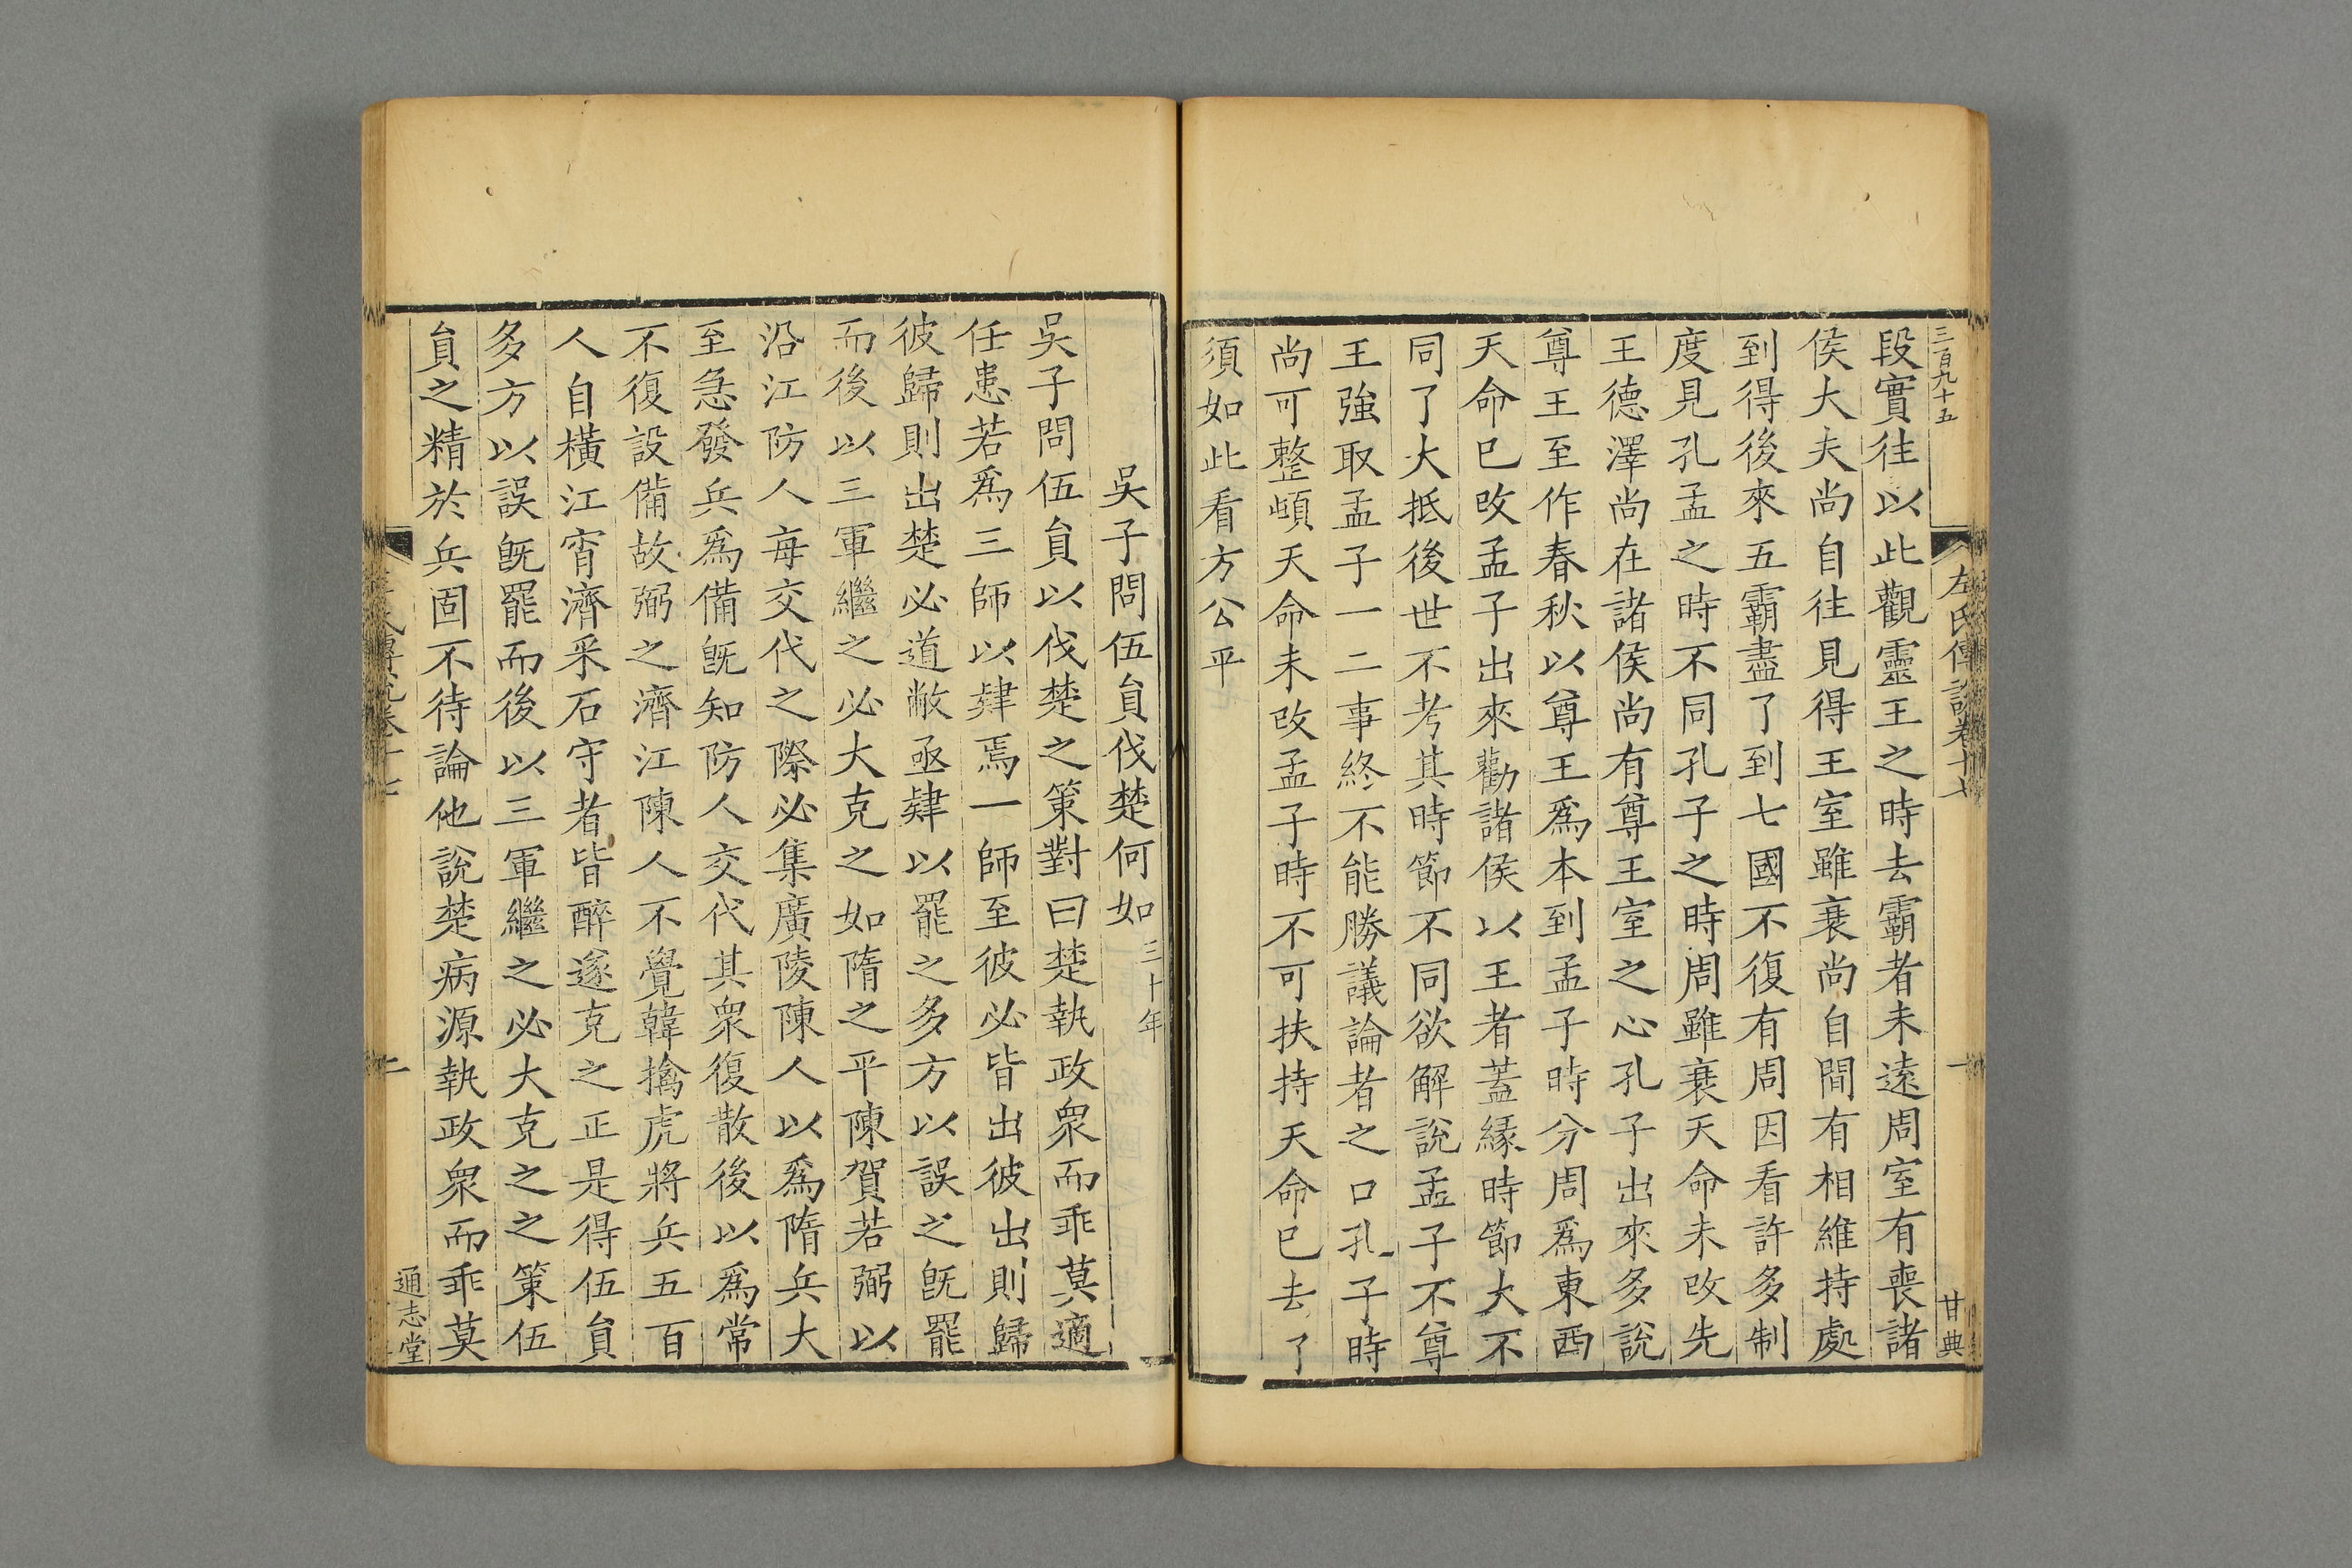 三百九十五
左氏傳說卷十七
一
甘典
段實往以此觀靈王之時去霸者未遠周室有喪諸
侯大夫尚自往見得王室雖衰尚自間有相維持處
到得後來五霸盡了到七國不復有周因看許多制
度見孔孟之時不同孔子之時周雖衰天命未改先
王德澤尚在諸侯尚有尊王室之心孔子出來多說
尊王至作春秋以尊王爲本到孟子時分周爲東西
天命已改孟子出來勸諸侯以王者蓋緣時節大不
同了大抵後世不考其時節不同欲解說孟子不尊
王強取孟子一二事終不能勝議論者之口孔子時
尚可整頓天命未改孟子時不可扶持天命已去了
須如此看方公平
吳子問伍員伐楚何如三十年
吳子問伍員以伐楚之策對曰楚執政衆而乖莫適
任患若爲三師以肄焉一師至彼必皆出彼出則歸
彼歸則出楚必道敝亟肄以罷之多方以誤之旣罷
而後以三軍繼之必大克之如隋之平陳賀若弼以
沿江防人每交代之際必集廣陵陳人以爲隋兵大
至急發兵爲備旣知防人交代其衆復散後以爲常
不復設備故弼之濟江陳人不覺韓擒虎將兵五百
人自橫江宵濟采石守者皆醉遂克之正是得伍員
多方以誤旣罷而後以三軍繼之必大克之之策伍
員之精於兵固不待論他說楚病源執政衆而乖莫
傳說卷十七
二
通志堂